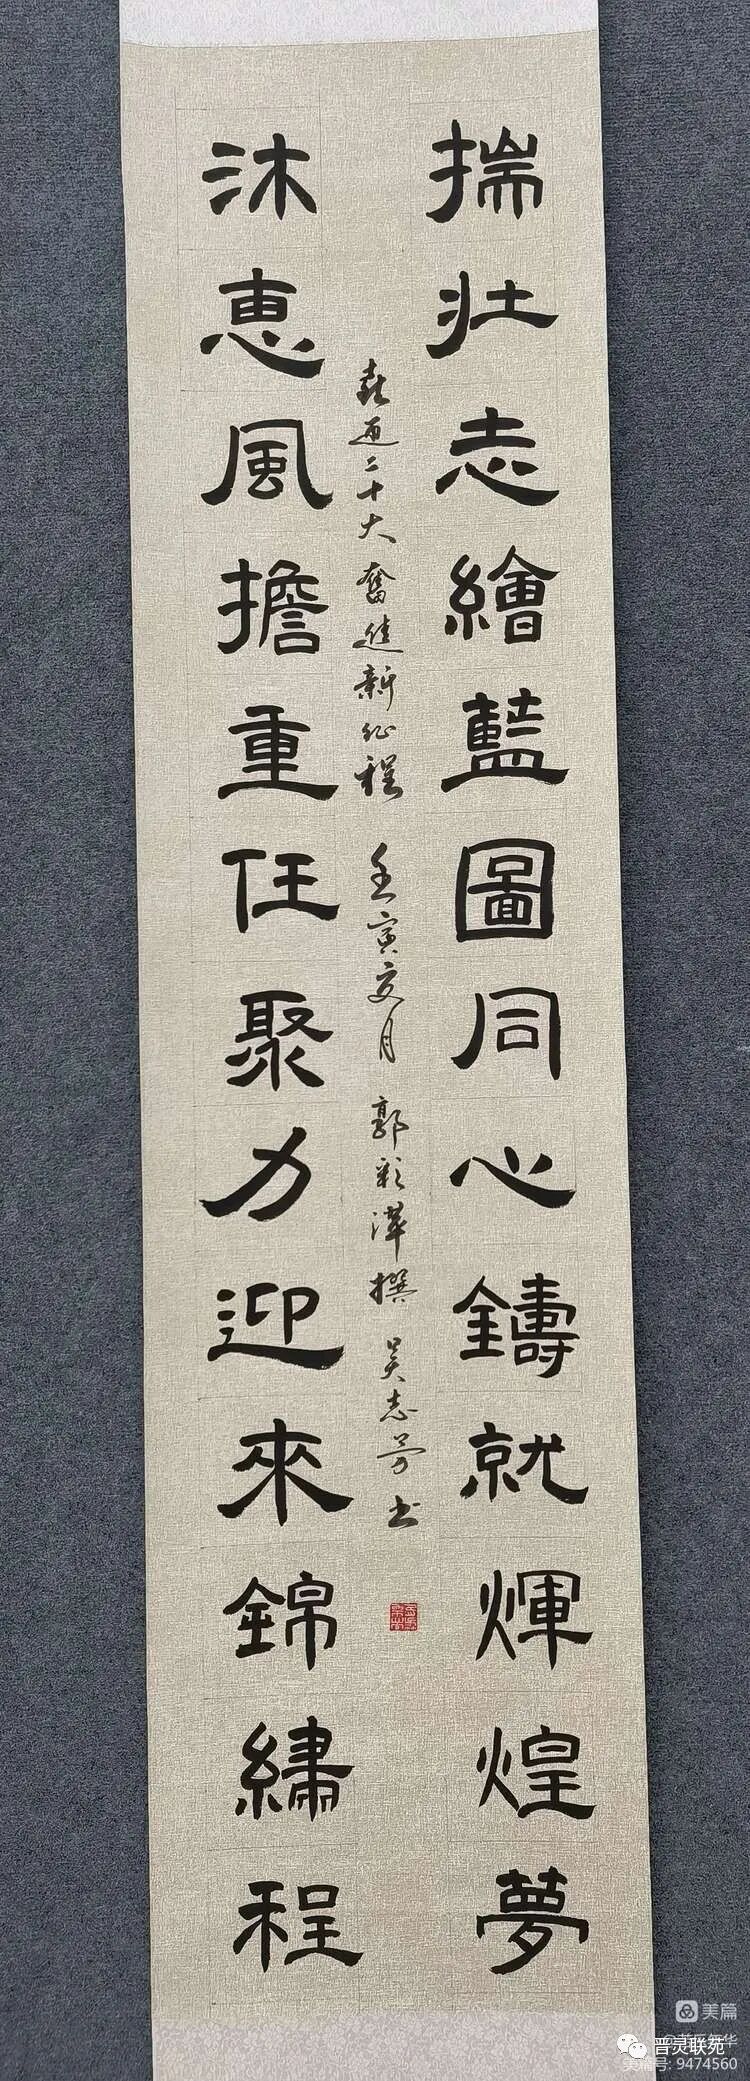 揣壯志繪藍圖同心鑄就輝煌夢
喜迎二十大奮進新征程 壬寅夏月 郭彩萍撰 吴志芳书
沐惠風擔重任聚力迎來錦繡程
美篇
晋灵联苑
美篇号: 9474560